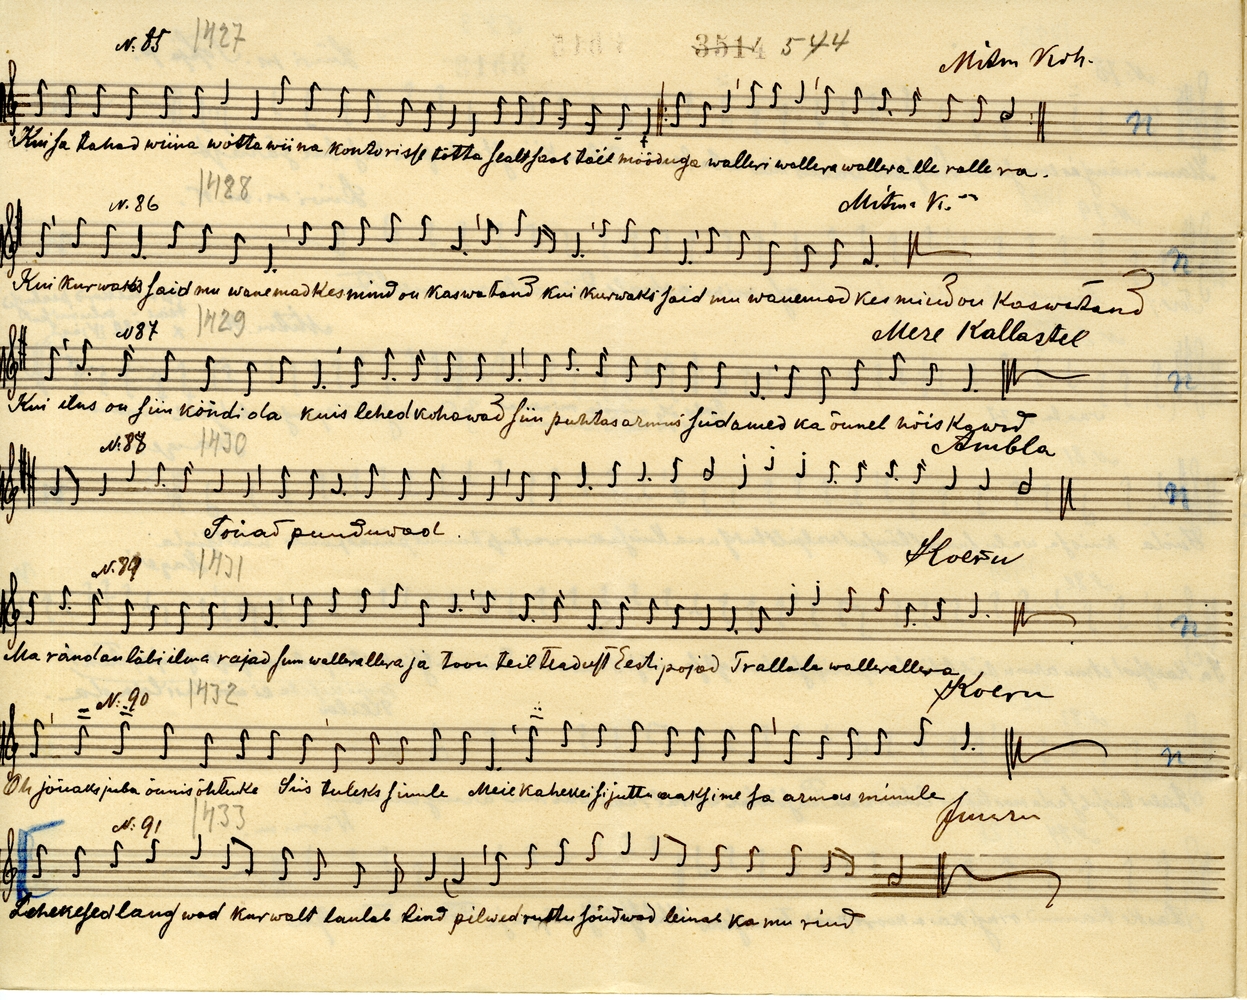 N. 85 1427 3514 544 Mitm Koh.
Kui sa tahad wiina wõtta wiina kontorisse tõtta sealt saab täil mõõduga walleri wallera wallera lle ralle ra.
N. 86 1428 Mitm K.
Kui kurwaks said mu wanemad kes mind on kaswatand kui kurwaks said mu wanemad kes mind on kaswatand
N 87 1429 Mere Kallastel
Kui ilus on siin kõndida kuis lehed kohawad siin puhtas armus südamed ka õnnel hõiskawad
N. 88 1430 Ambla
Tõiad punduwad.
N. 89 1431 Koeru
Ma rändan läbi ilma rajad sum wallerallera ja toon teil teadust Eesti pojad Trallala wallerallera
N. 90 1432 Koeru
Oh jõuaks juba õnnis õhtuke Siis tuleks sinule Meie kahekeisi juttu aaksime sa armas minule
N. 91 1433 Juuru
Lehekesed langwad kurwalt laulab lind pilwed ruttu sõudwad leinab ka mu rind